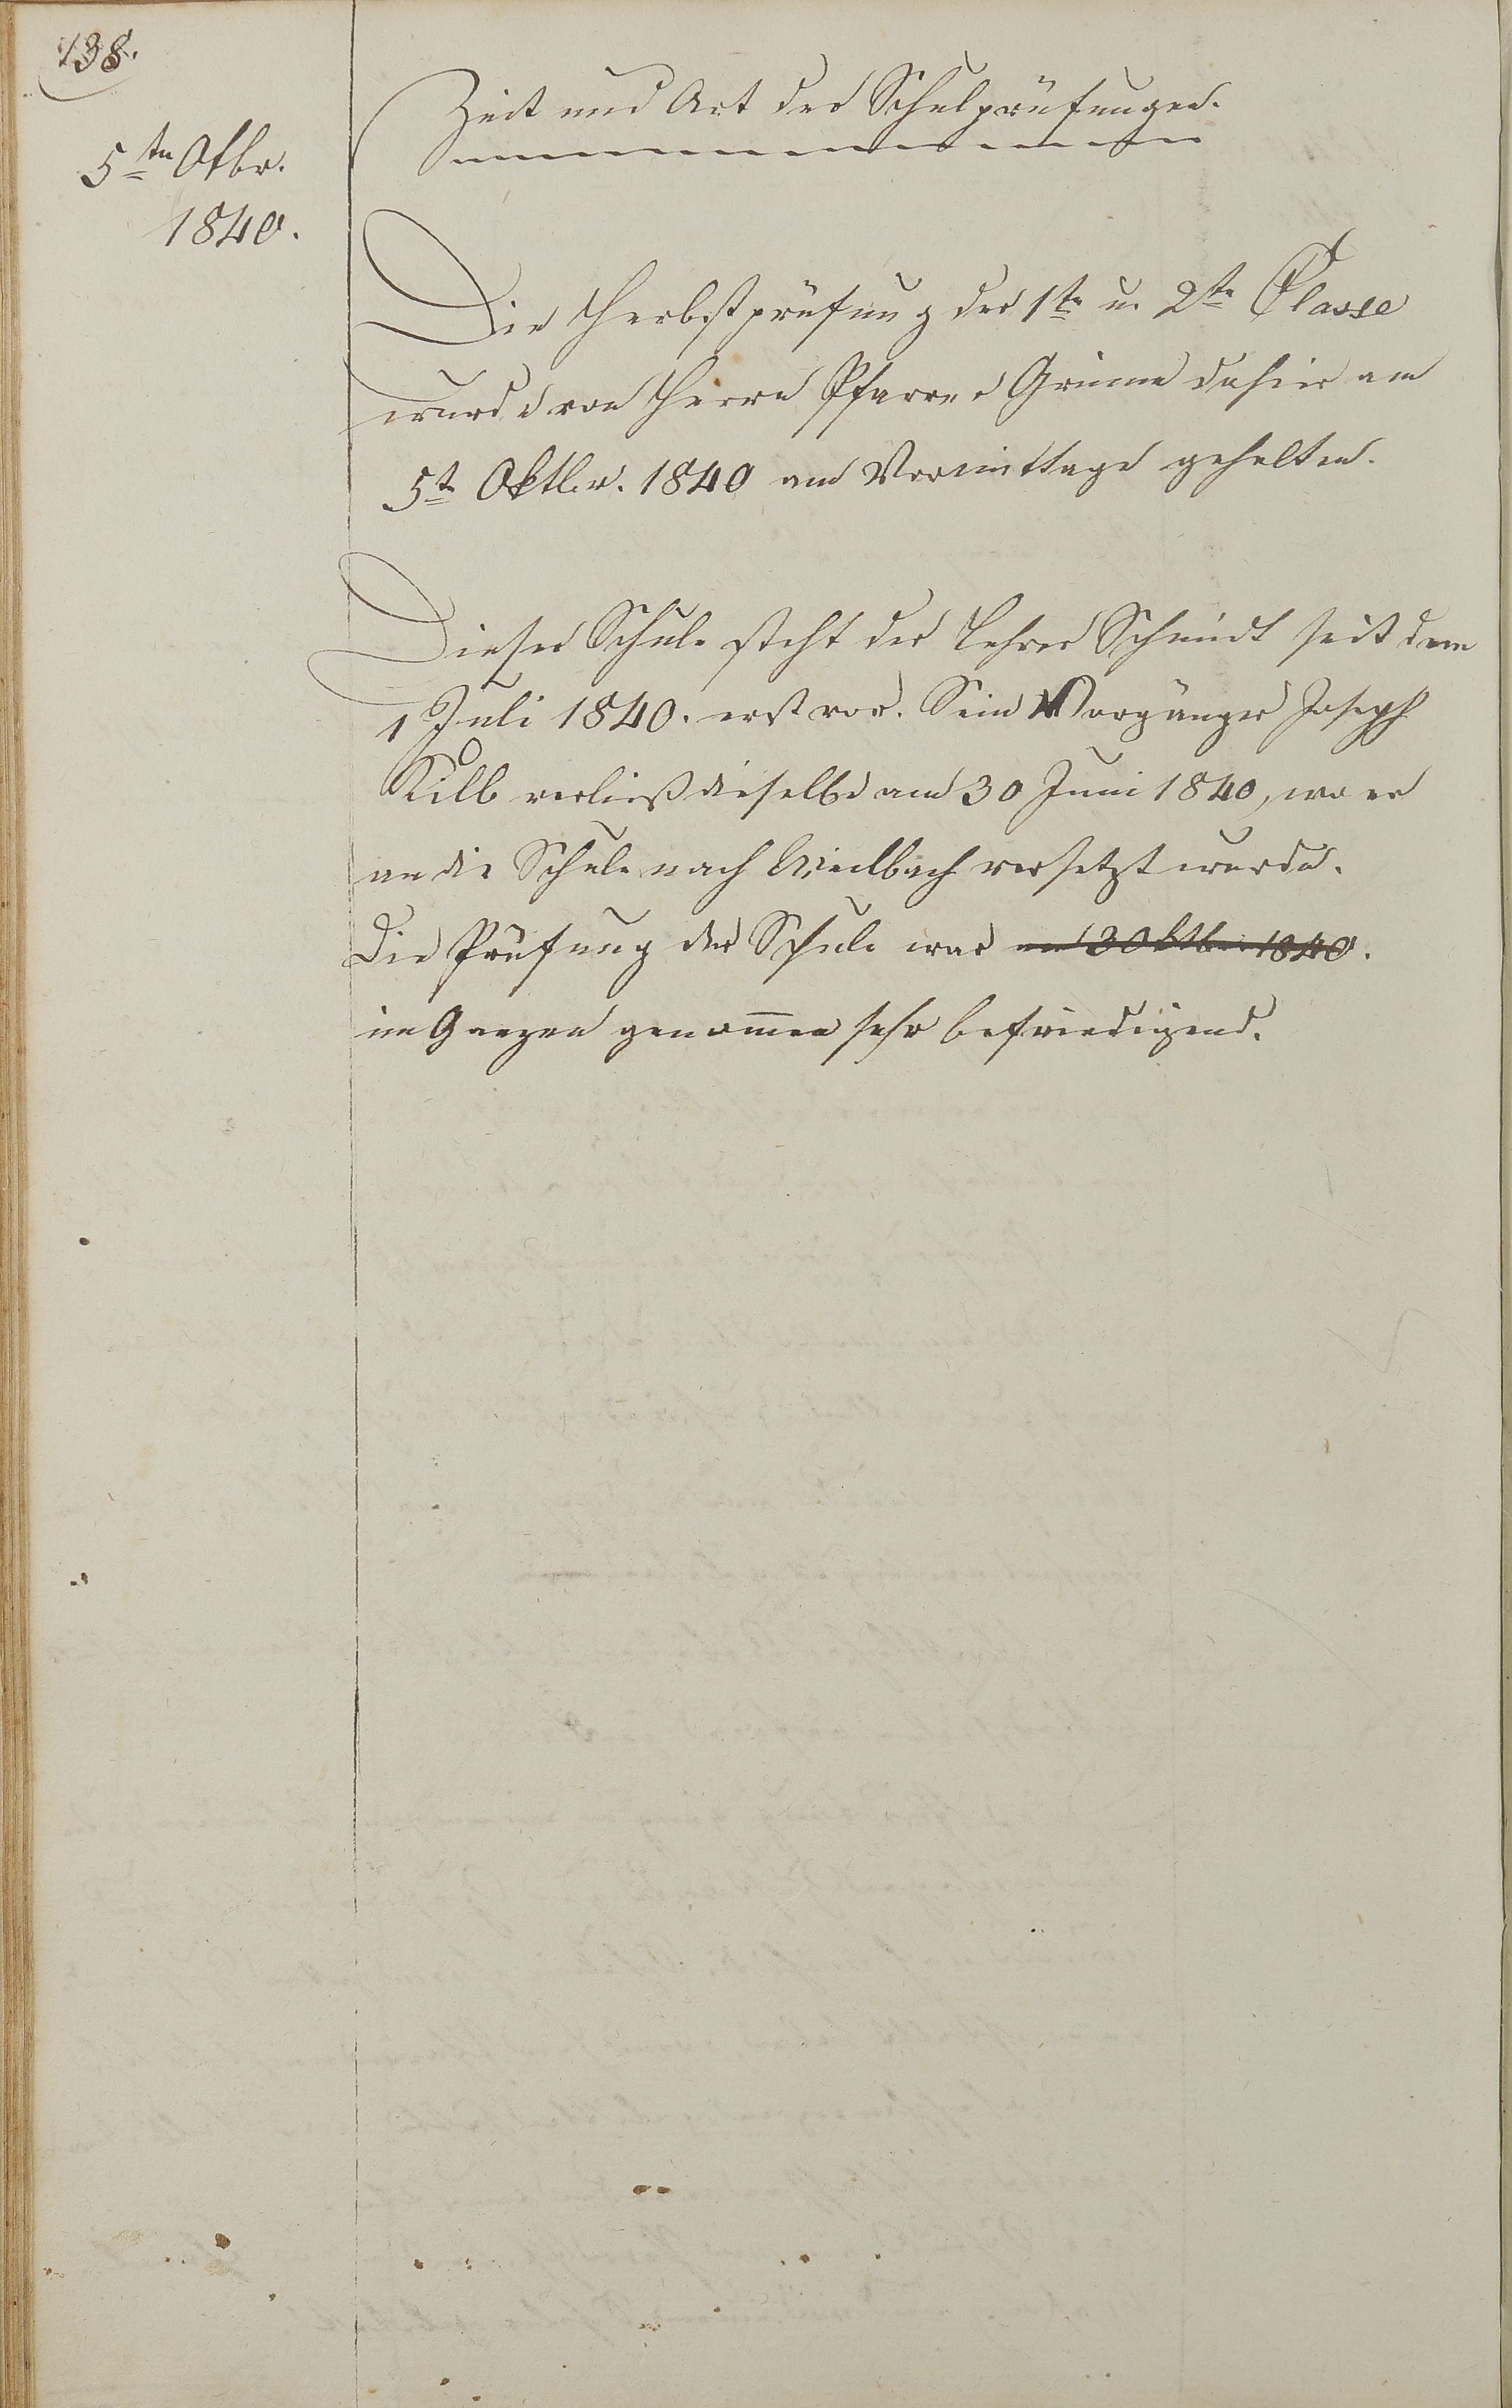 138.
5ten Otbr.
1840.
Zeit und Art der Schulprüfungen.
Die Herbstprüfung der 1te u. 2te Classe
wurde von Herrn Pfarrer Grimm dahier am
5te Oktbr. 1840 am Vormittage gehalten.
Dieser Schule steht der Lehrer Schmidt seit dem
1 Juli 1840. erst vor. Sein Vorgänger Joseph
Kilb verließ dieselbe am 30 Juni 1840, wo er
an die Schule nach versetzt wurde.
Die Prüfung der Schule war am 3 Oktbr 1840.
im Ganzen genommen sehr befriedigend.